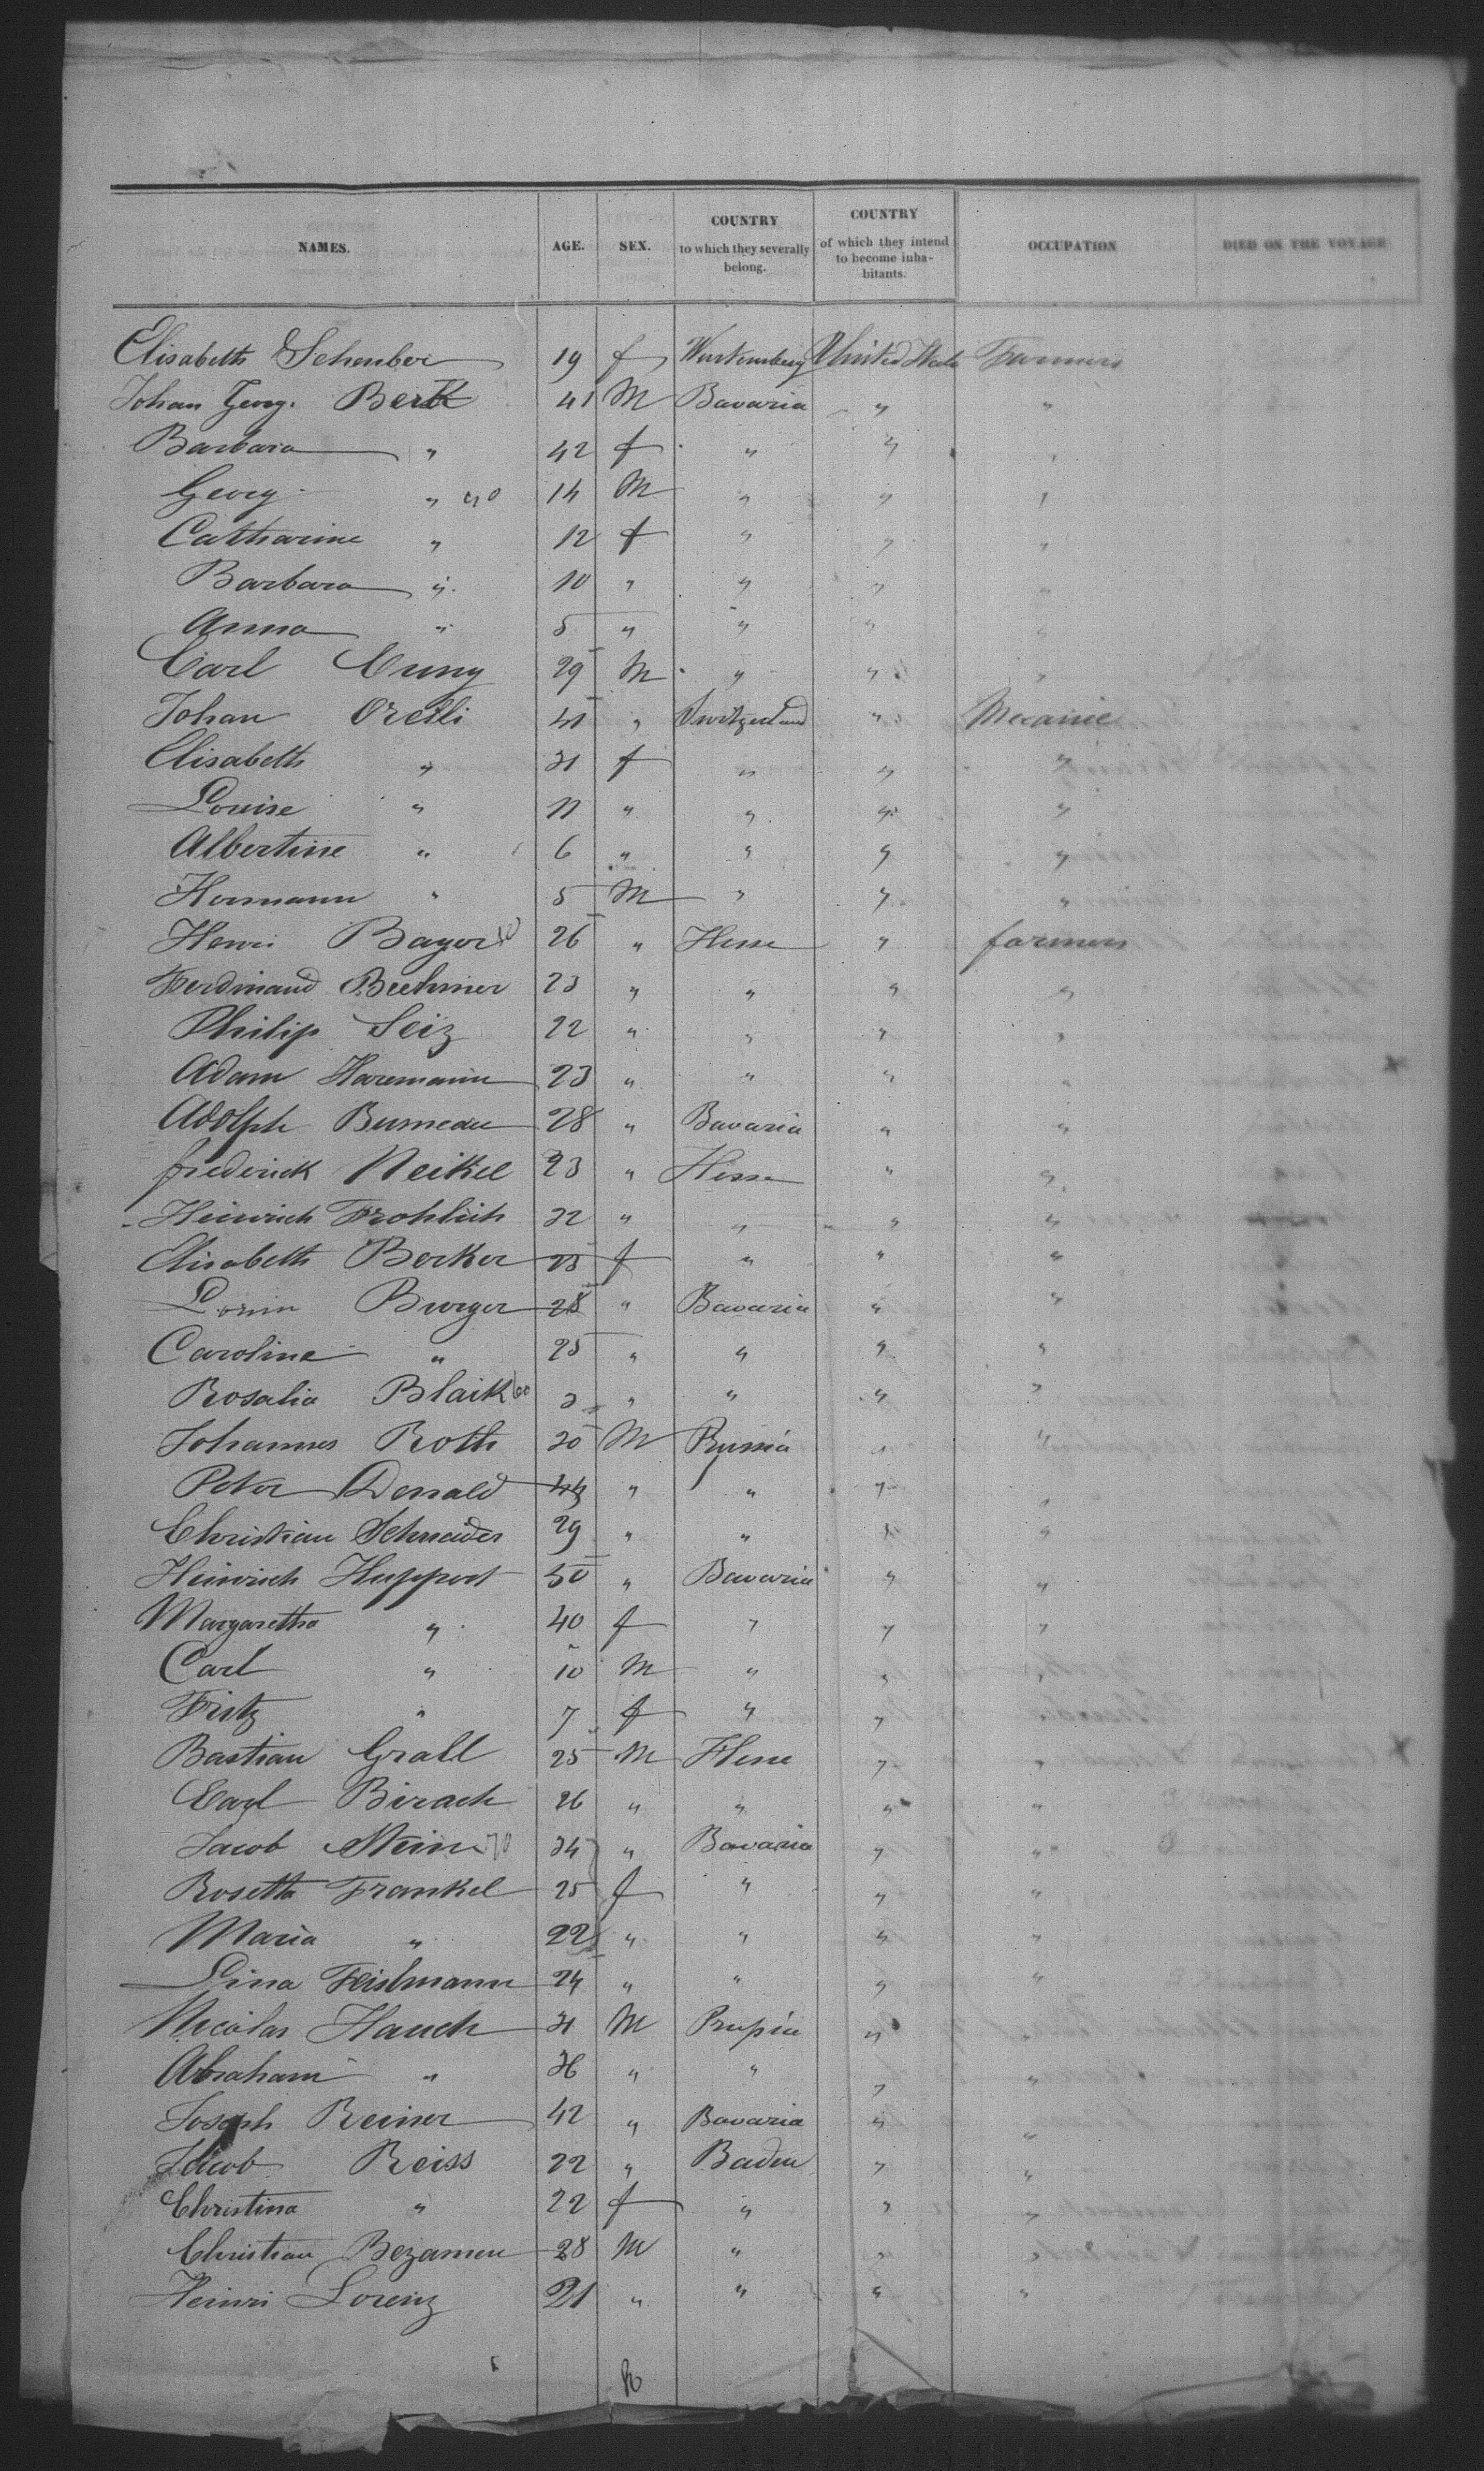 NAMES. AGE. SEX. COUNTRY to which they severally belong. COUNTRY of which they intend to become inha-bitants. OCCUPATION DIED ON THE VOYAGE
Elisabeth Scheuber 19 f Wurtemberg United State Farmers
Johan Georg. Berk 41 M Bavaria " "
Barbara " 42 f " " "
Georg " 40 14 M " " "
Catharine " 12 f " " "
Barbara " 10 " " " "
Anna " 5 " " " "
Carl Cuny 29 M " " "
Johan Orelli 41 " Switzerland " Mecanic
Elisabeth " 31 f " " "
Louise " 11 " " " "
Albertine " 6 " " " "
Hermann " 5 M " " "
Henri Bayer 26 " Hesse " farmers
Ferdinand Bechmer 23 " " " "
Philip Seiz 22 " " " "
Adam Haremann 23 " " " "
Adolph Bumeau 28 " Bavaria " "
frederick Neikel 23 " Hesse " "
Heinrich Frohlich 32 " " " "
Elisabeth Berker 23 f " " "
Burger 28 " Bavaria " "
Caroline " 25 " " " "
Rosalia Blaik 3 " " " "
Johannes Roth 30 M Prussia " "
Peter 44 " " " "
Christian Schneider 29 " " " "
Heinrich Huppert 50 " Bavaria " "
Margaretha " 40 f " " "
Carl " 10 M " " "
Fritz " 7 f " " "
Bastian Grall 25 M Hesse " "
Carl Birach 26 " " " "
Jacob Stein 70 34 " Bavaria " "
Rosetta Frankel 25 f " " "
Maria " 22 " " " "
Lina Feistmann 24 " " " "
Nicolas Hauch 31 M Prussia " "
Abraham " 36 " " " "
Joseph Reiner 42 " Bavaria " "
Jacob Reiss 22 " Baden " "
Christina " 22 f " " "
Christian Bezamen 28 M " " "
Heinri Lorenz 21 " " " "